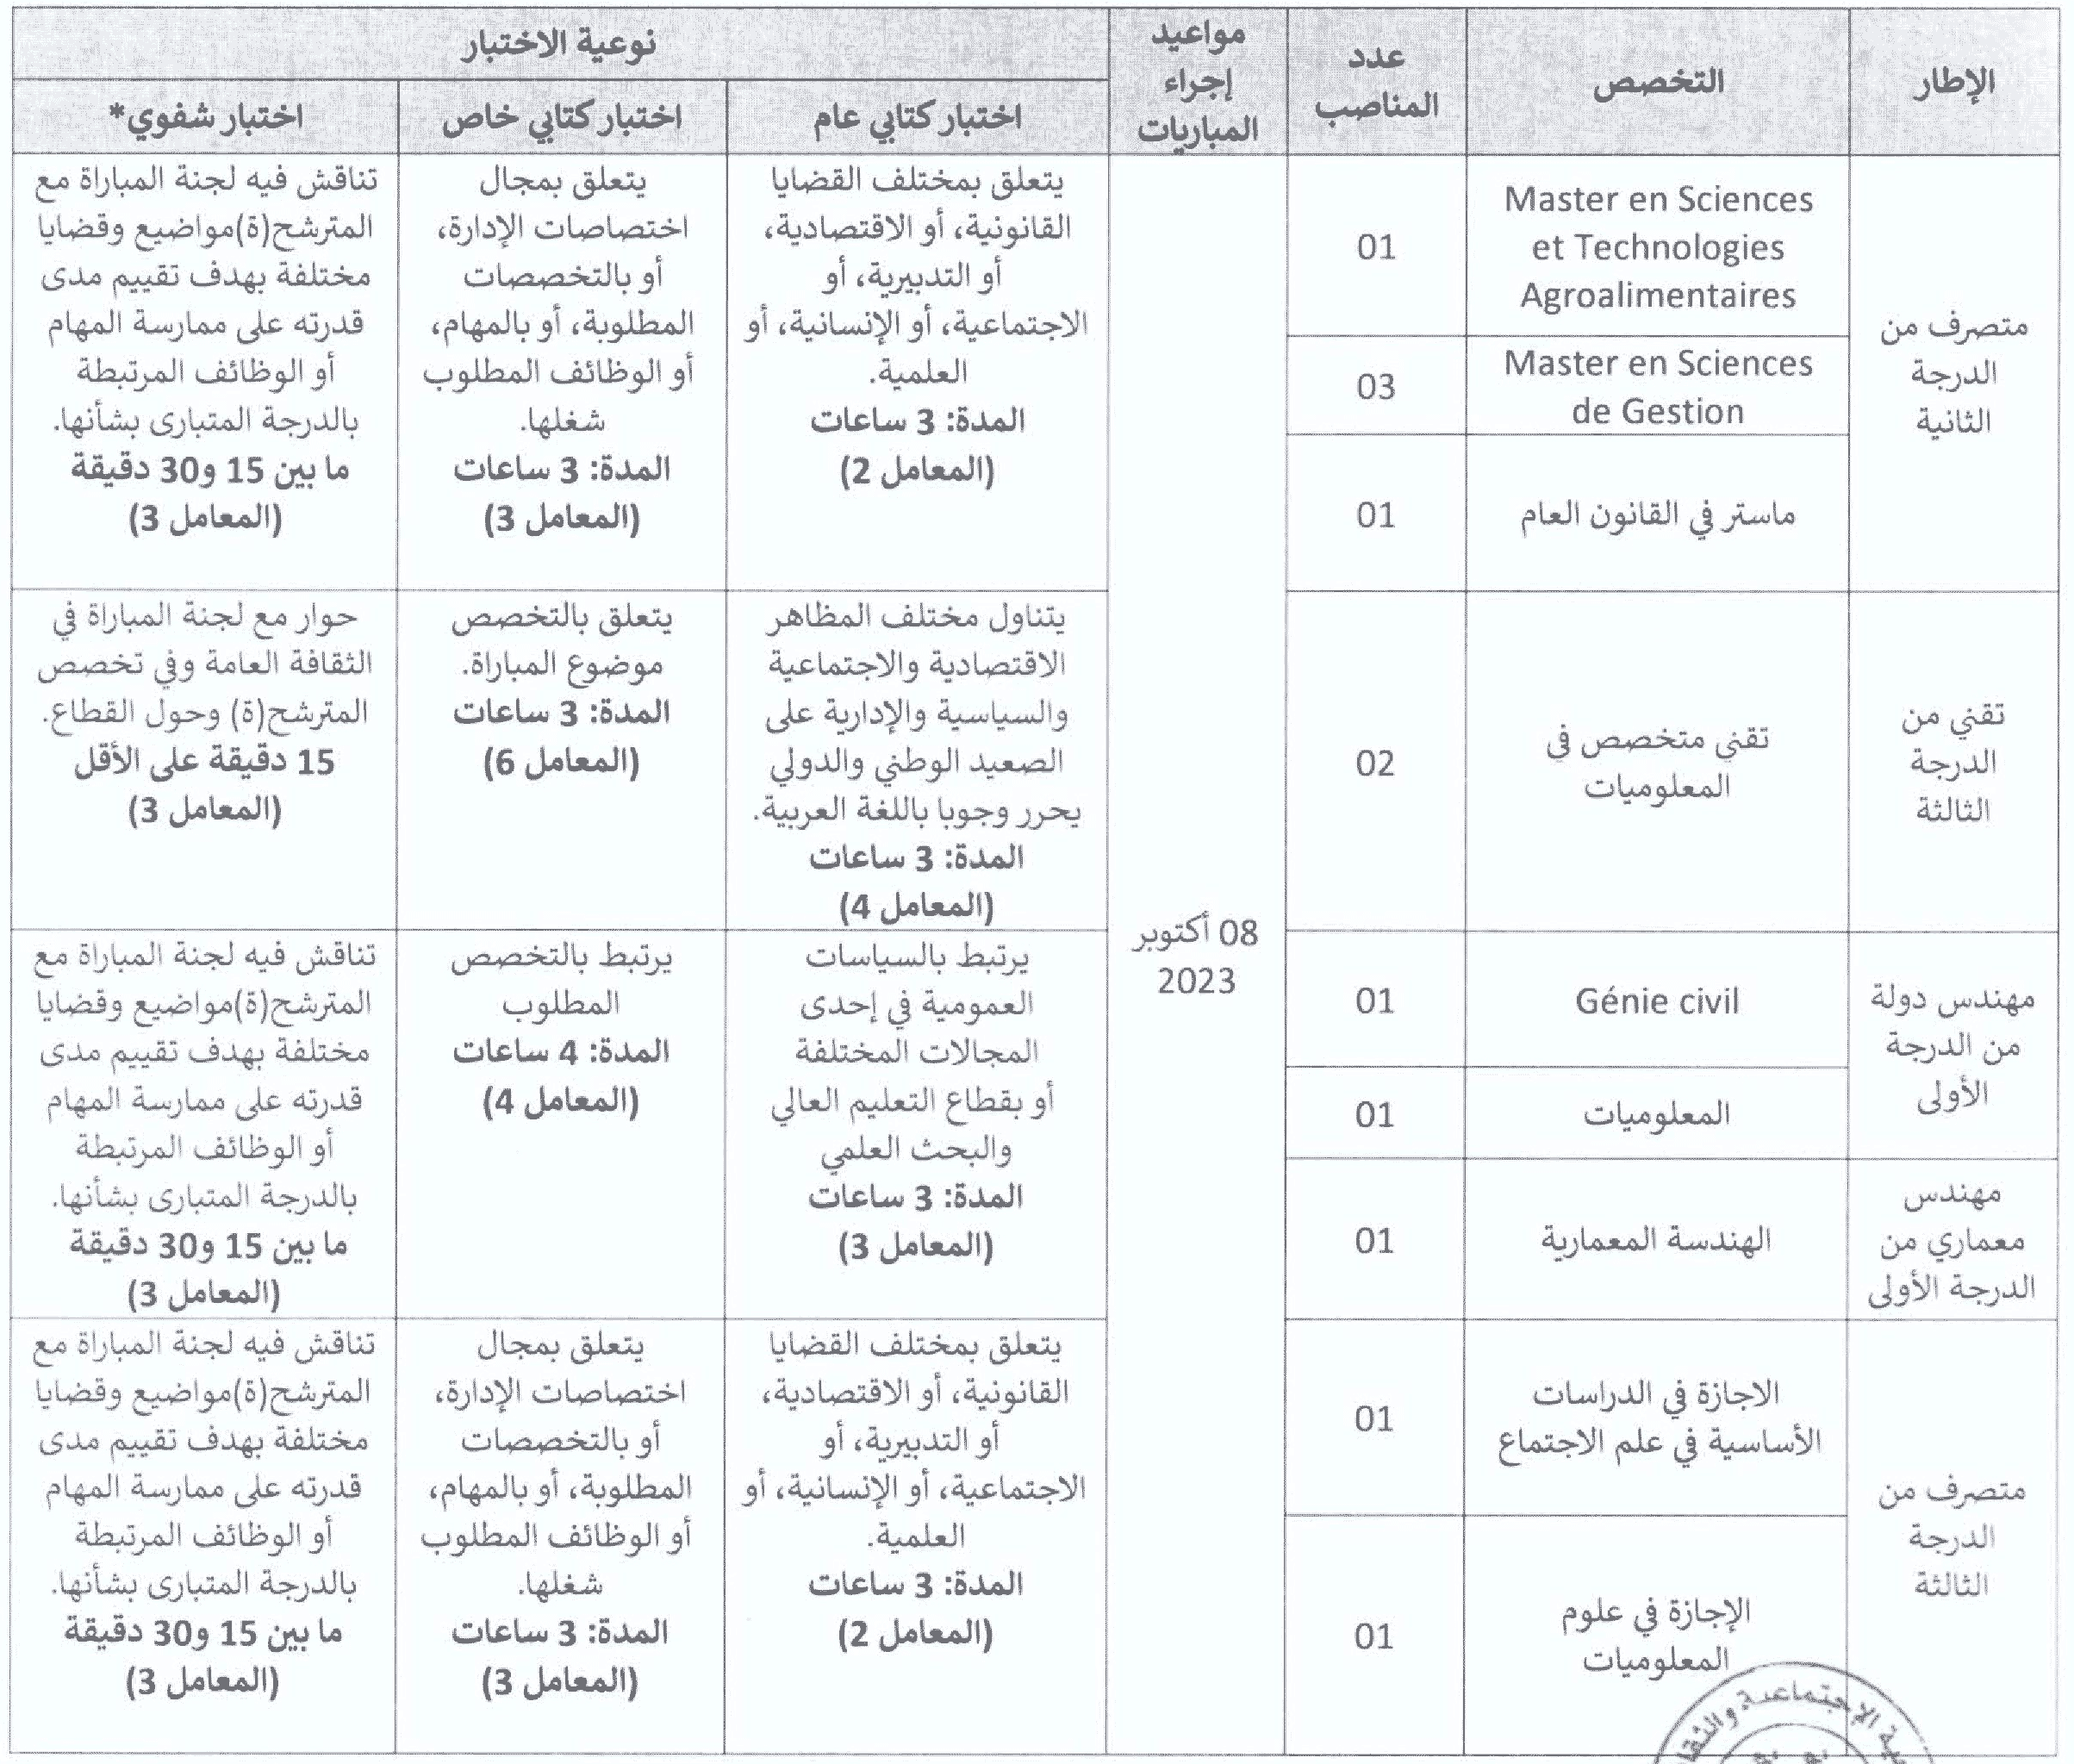 الإطار
التخصص
عدد
المناصب
مواعيد
إجراء
المباريات
نوعية الاختبار
اختبار كتابي عام
اختبار كتابي خاص
اختبار شفوي*
متصرف من
الدرجة
الثانية
Master en Sciences
et Technologies
Agroalimentaires
01
Master en Sciences
de Gestion
03
ماستر في القانون العام
01
08 أكتوبر
2023
يتعلق بمختلف القضايا
القانونية، أو الاقتصادية،
أو التدبيرية، أو
الاجتماعية، أو الإنسانية، أو
العلمية.
المدة: 3 ساعات
(المعامل 2)
يتعلق بمجال
اختصاصات الإدارة،
أو بالتخصصات
المطلوبة، أو بالمهام،
أو الوظائف المطلوب
شغلها.
المدة: 3 ساعات
(المعامل 3)
تناقش فيه لجنة المباراة مع
المترشح(ة)مواضيع وقضايا
مختلفة بهدف تقييم مدى
قدرته على ممارسة المهام
أو الوظائف المرتبطة
بالدرجة المتبارى بشأنها.
ما بين 15 و30 دقيقة
(المعامل 3)
تقني من
الدرجة
الثالثة
تقني متخصص في
المعلوميات
02
يتناول مختلف المظاهر
الاقتصادية والاجتماعية
والسياسية والإدارية على
الصعيد الوطني والدولي
يحرر وجوبا باللغة العربية.
المدة: 3 ساعات
(المعامل 4)
يتعلق بالتخصص
موضوع المباراة.
المدة: 3 ساعات
(المعامل 6)
حوار مع لجنة المباراة في
الثقافة العامة وفي تخصص
المترشح(ة) وحول القطاع.
15 دقيقة على الأقل
(المعامل 3)
مهندس دولة
من الدرجة
الأولى
Génie civil
01
المعلوميات
01
مهندس
معماري من
الدرجة الأولى
الهندسة المعمارية
01
يرتبط بالسياسات
العمومية في إحدى
المجالات المختلفة
أو بقطاع التعليم العالي
والبحث العلمي
المدة: 3 ساعات
(المعامل 3)
يرتبط بالتخصص
المطلوب
المدة: 4 ساعات
(المعامل 4)
تناقش فيه لجنة المباراة مع
المترشح(ة)مواضيع وقضايا
مختلفة بهدف تقييم مدى
قدرته على ممارسة المهام
أو الوظائف المرتبطة
بالدرجة المتبارى بشأنها.
ما بين 15 و30 دقيقة
(المعامل 3)
متصرف من
الدرجة
الثالثة
الاجازة في الدراسات
الأساسية في علم الاجتماع
01
الإجازة في علوم
المعلوميات
01
يتعلق بمختلف القضايا
القانونية، أو الاقتصادية،
أو التدبيرية، أو
الاجتماعية، أو الإنسانية، أو
العلمية.
المدة: 3 ساعات
(المعامل 2)
يتعلق بمجال
اختصاصات الإدارة،
أو بالتخصصات
المطلوبة، أو بالمهام،
أو الوظائف المطلوب
شغلها.
المدة: 3 ساعات
(المعامل 3)
تناقش فيه لجنة المباراة مع
المترشح(ة)مواضيع وقضايا
مختلفة بهدف تقييم مدى
قدرته على ممارسة المهام
أو الوظائف المرتبطة
بالدرجة المتبارى بشأنها.
ما بين 15 و30 دقيقة
(المعامل 3)
الإجتماعية